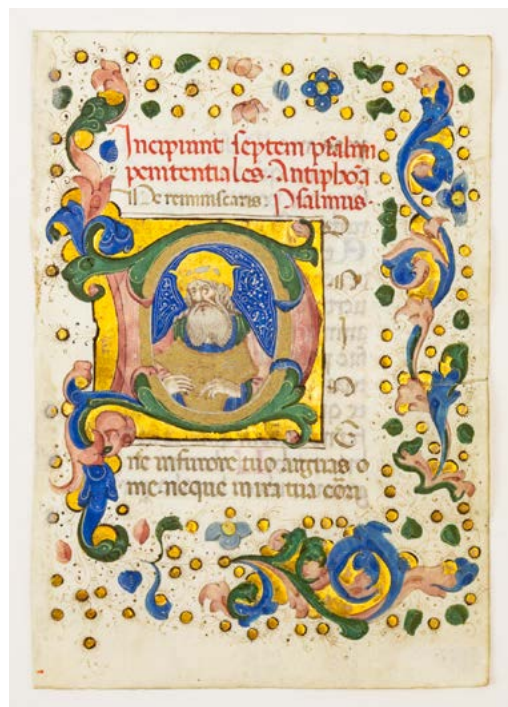 Incipiunt septem psalmi
penitentiales. Antiphõa
Ne reminiscaris: Psalmus.
D
ne in furore tuo arguas
me: neque in ira tua cõri